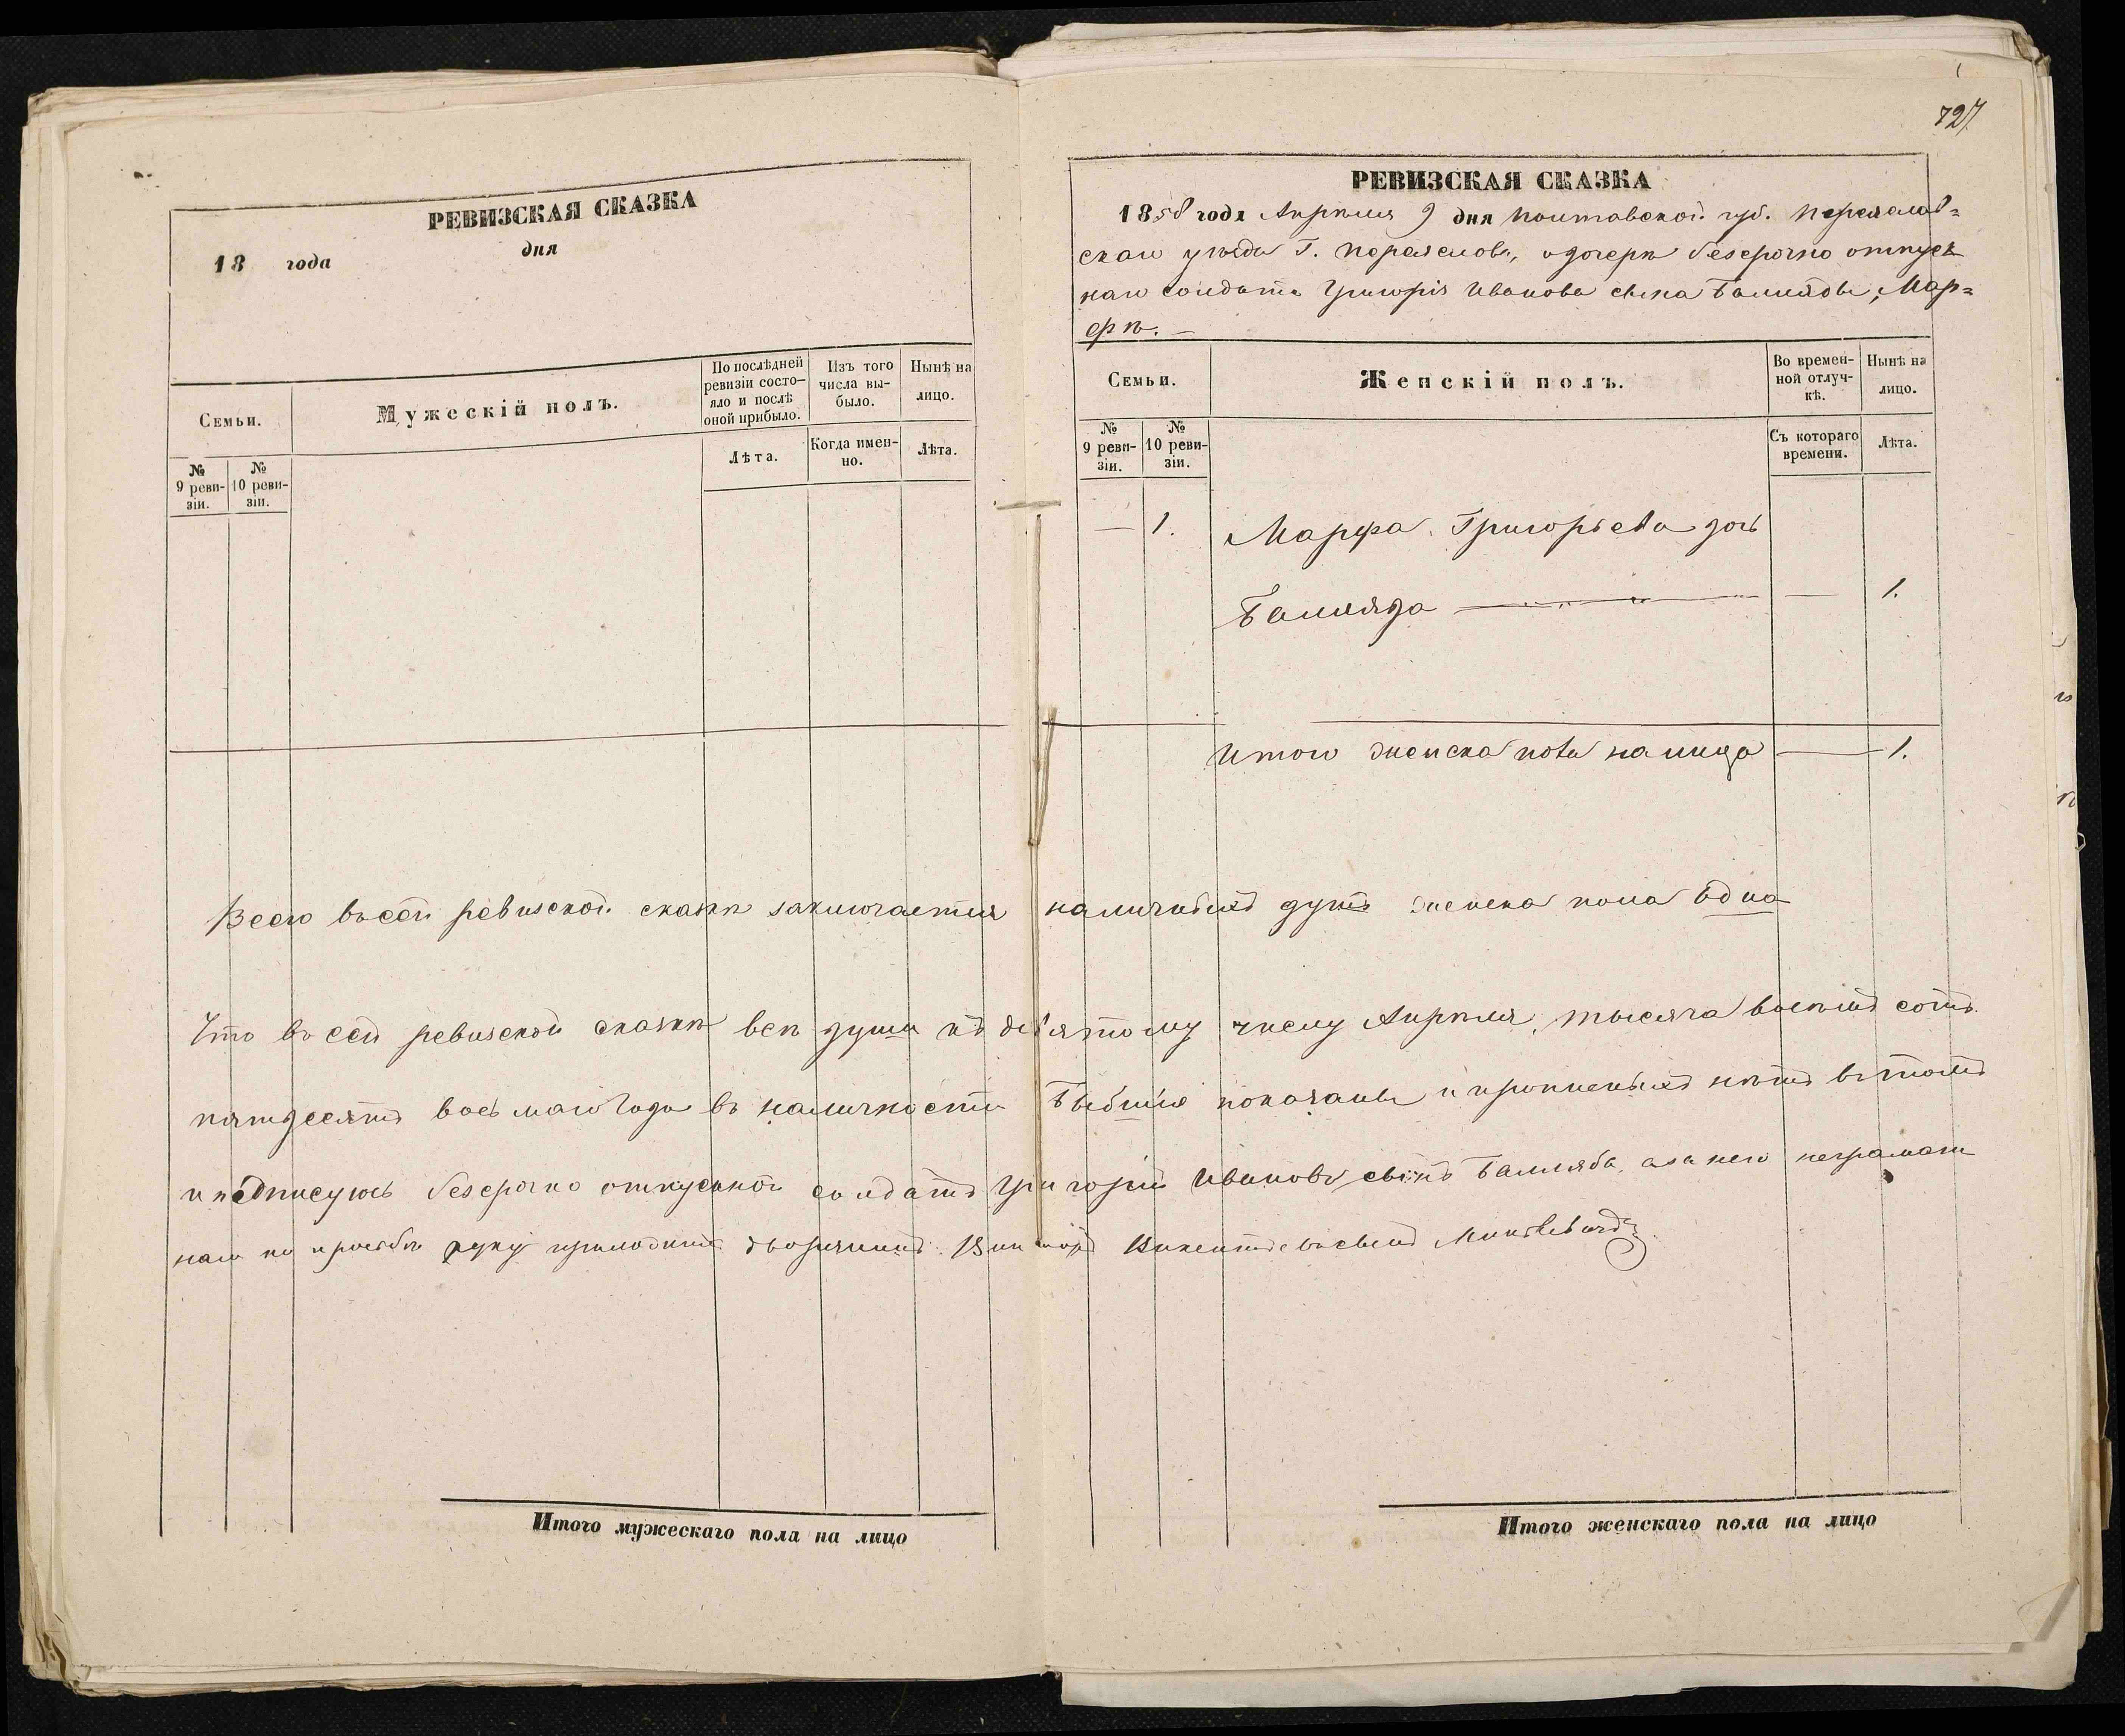 727
РЕВИЗСКАЯ СКАЗКА
18 года дня
Семьи.
Мужескій полъ.
По послѣдней ревизіи состо-яло и послѣ оной прибыло.
Изъ того числа вы-было.
Нынѣ на лицо.
№ 9 реви-зіи.
№ 10 реви-зіи.
Лѣта.
Когда имен-но.
Лѣта.
РЕВИЗСКАЯ СКАЗКА
1858 года Апрѣля 9 дня Полтавской губ. Переяслав=
скаго уѣзда Г. Переяслова, о дочери безсрочно отпуск
наго солдата Григорія Иванова сына Балияды, Мар=
фѣ. —
Семьи.
Женскій полъ.
Во времен-ной отлуч-кѣ.
Нынѣ на лицо.
№ 9 реви-зіи.
№ 10 реви-зіи.
Съ котораго времени.
Лѣта.
— 1. Марфа Григорьева дочь
Балияда — — 1.
Итого женска пола на лицо — 1.
Всего въ сей ревиской сказкѣ заключается наличныхъ душъ женска пола Една
Что въ сей ревиской сказкѣ всѣ души къ девятому числу Апрѣля, тысяча восемъ сотъ
пятдесятъ восьмаго Года въ наличности Бывшія показаны и прописныхъ нѣтъ в томъ
и подписуюсь безсрочно отпускной солдатъ Григорій Ивановъ сынъ Балияда, а за него неграмат
наго по просьбѣ руку приложилъ дворянинъ Викентьевъ сынъ
Итого мужескаго пола на лицо
Итого женскаго пола на лицо